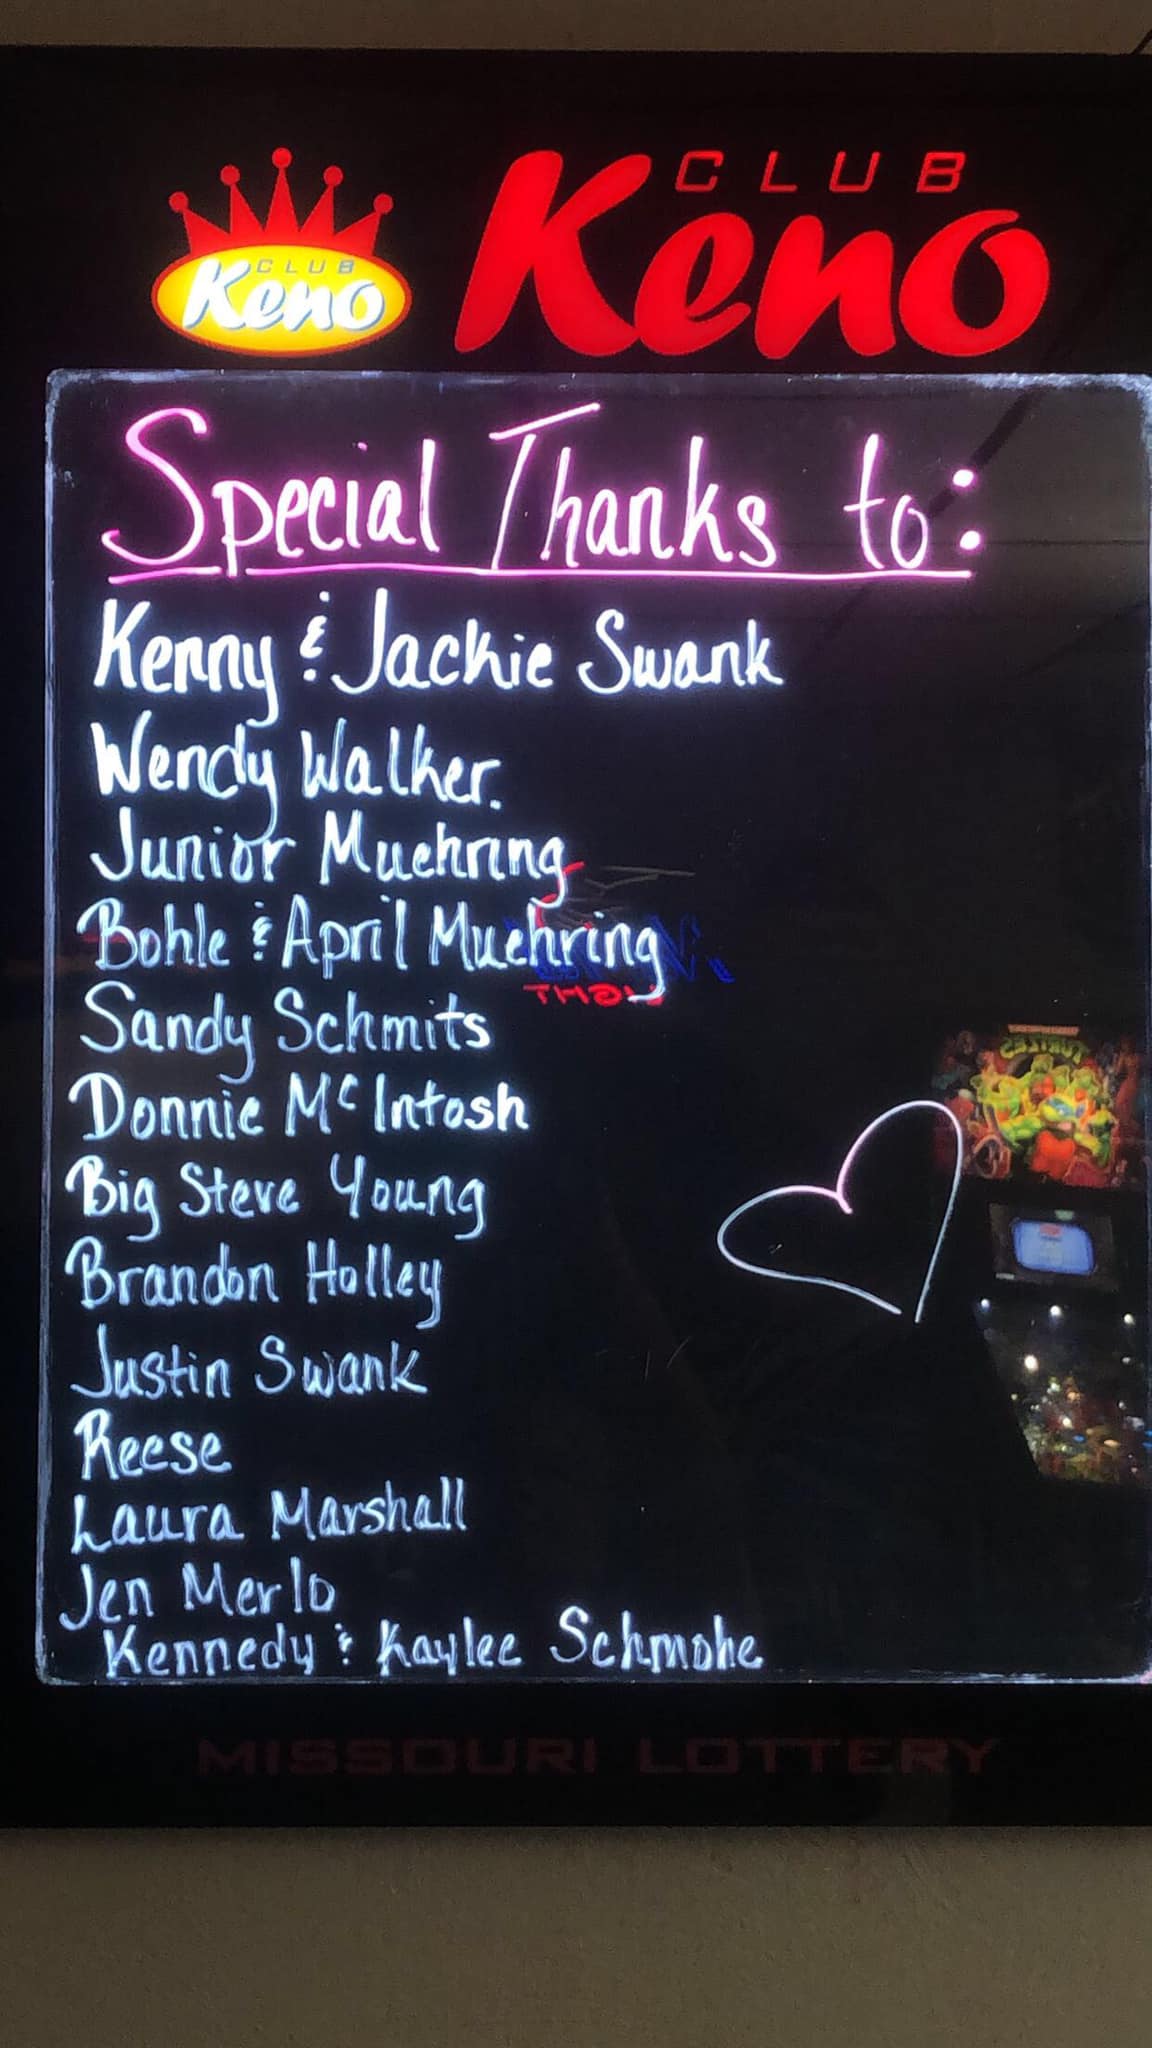 CLUB
Keno
CLUB
Keno
Special Thanks to:
Kenny & Jackie Swank
Wendy Walker.
Junior Muehring
Bohle & April Muehring
LIGHT
Sandy Schmits
TURTLES
Donnie McIntosh
Big Steve Young
Brandon Holley
Justin Swank
Reese
Laura Marshall
Jen Merlo
Kennedy & Kaylee Schmohe
MISSOURI LOTTERY